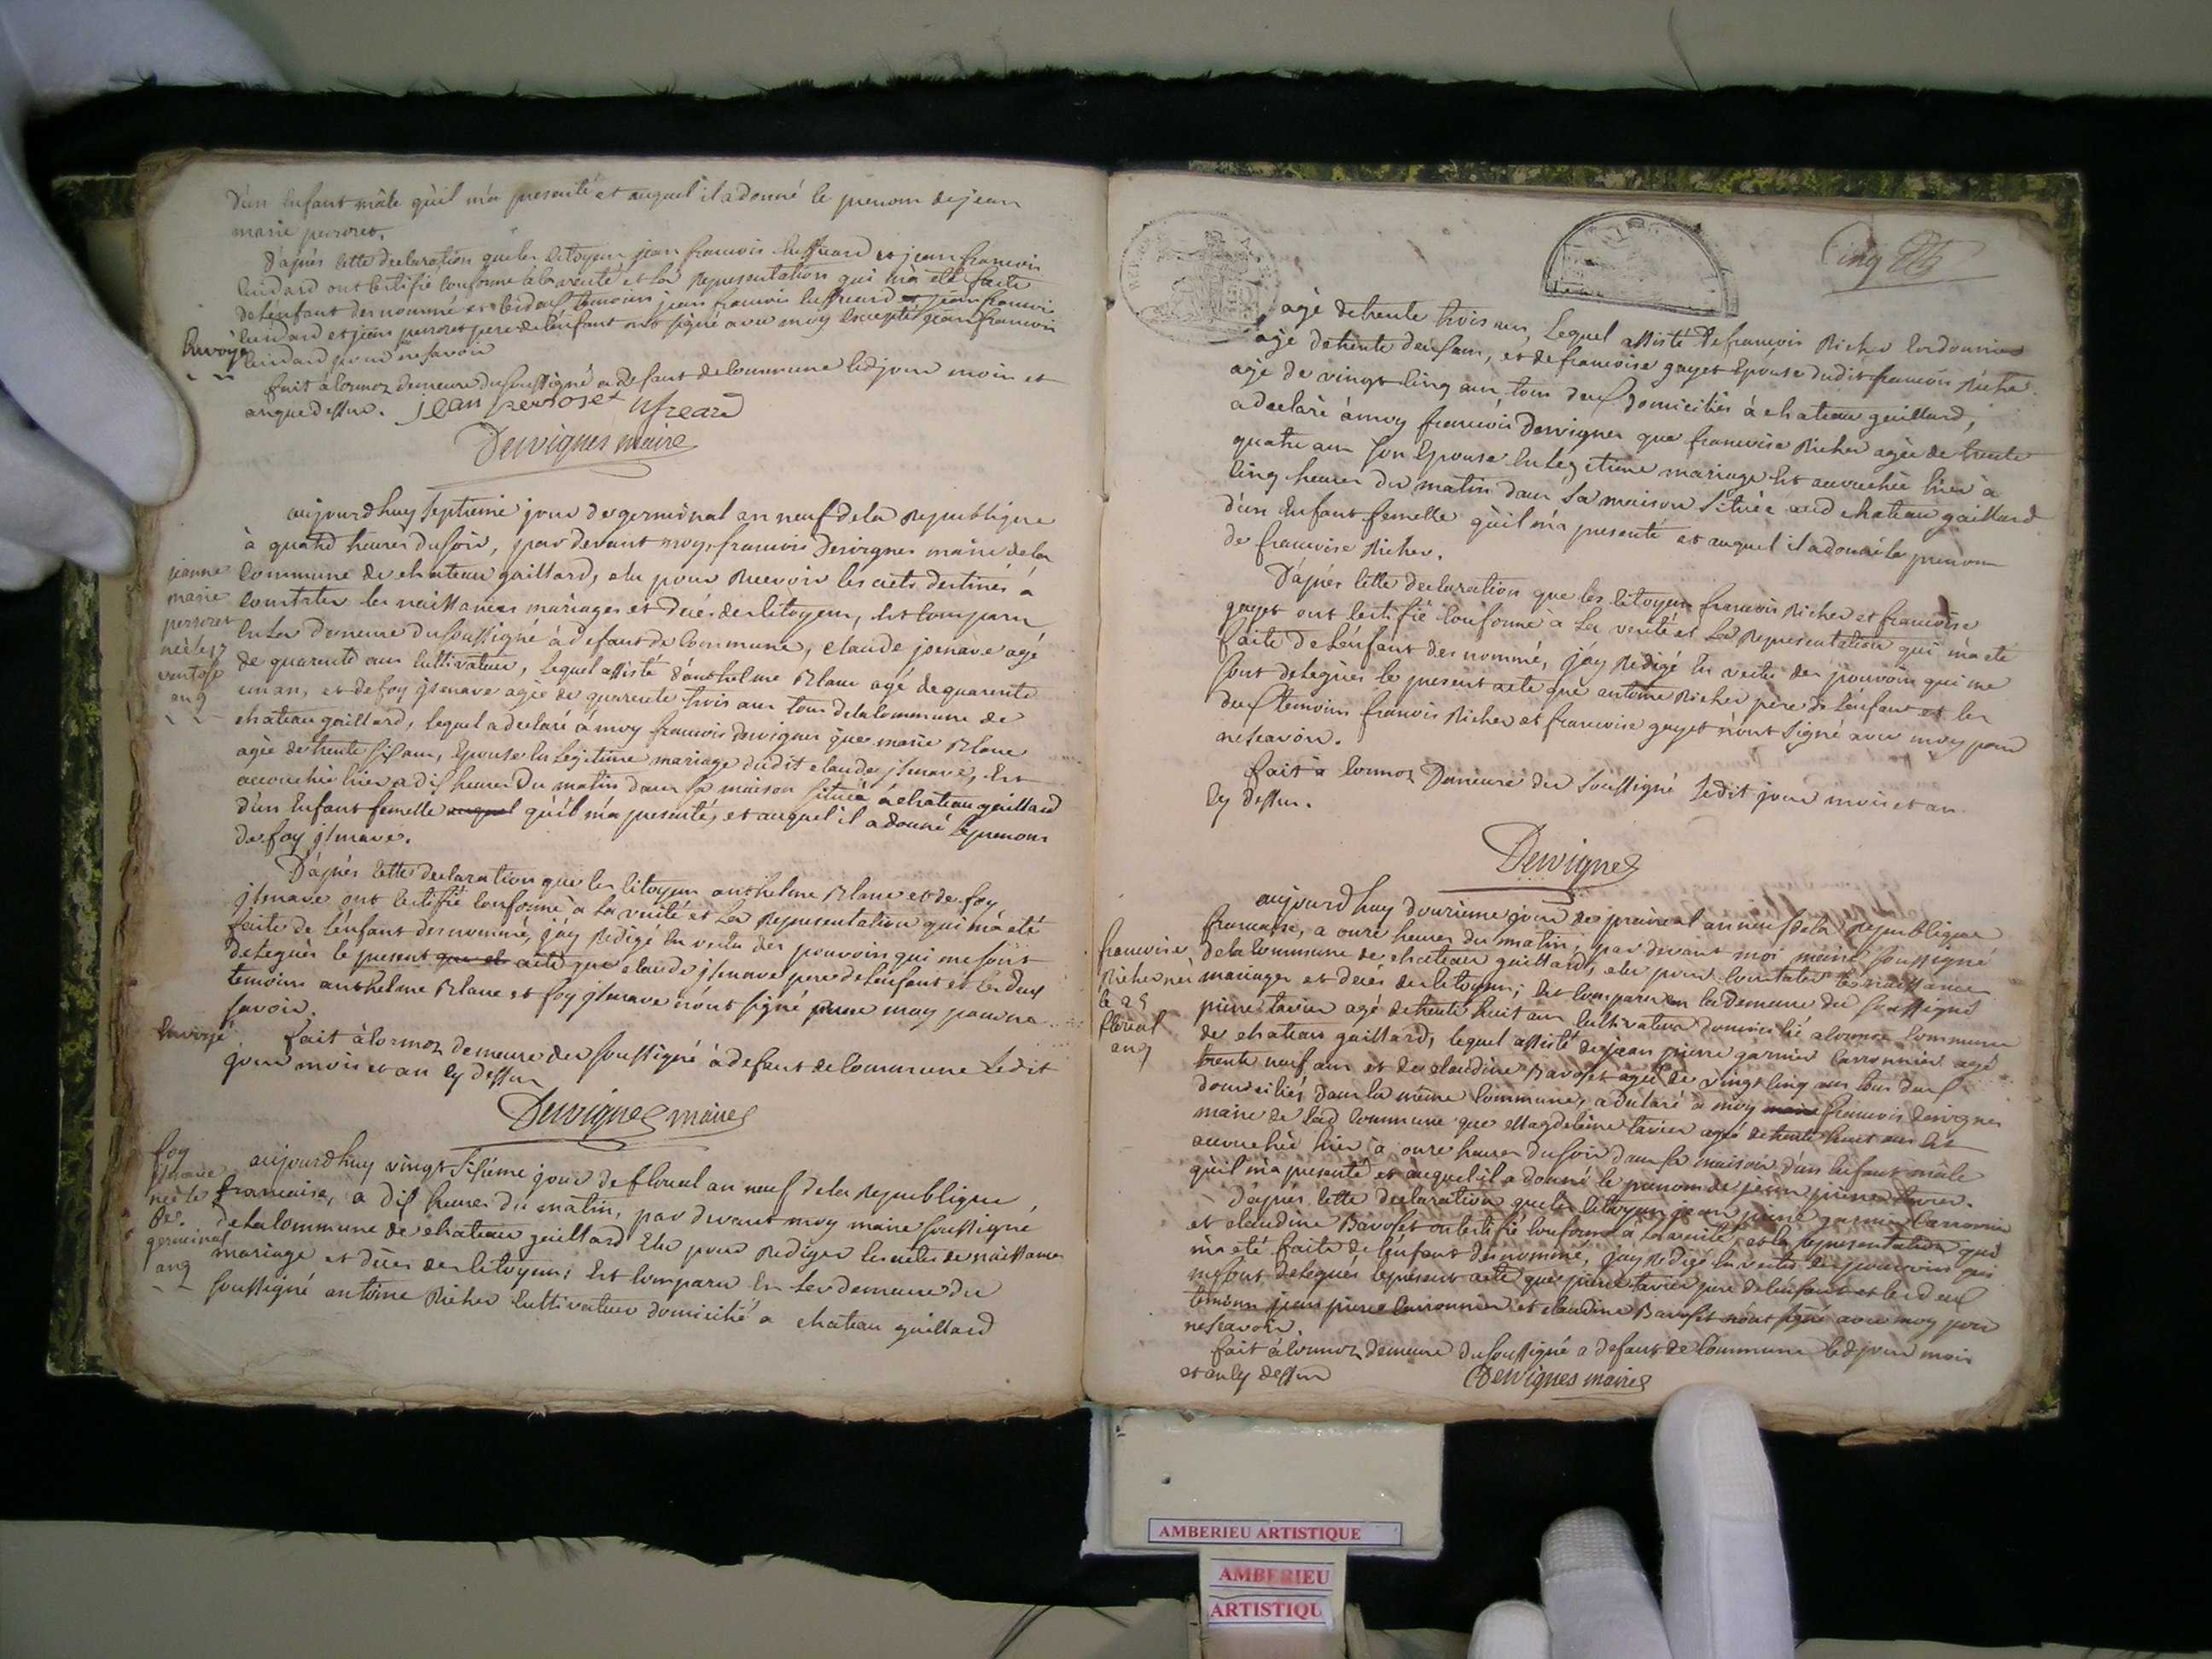 d'un Enfant mâle qu'il m'a presenté et auquel il a donné le prenom de jean
marie perroset.
D'après cette declaration que les Citoyens jean francois et jean francois
ont certifié conforme a la verité et la Representation qui m'a eté faite
de L'enfant denommé et les deux temoins jean francois jean francois
et jean perroset pere de l'enfant ont signé avec moy excepté jean francois
pour ne savoir
fait à lormoz demeure du soussigné a defaut de commune ledjour mois et
an que dessus. jean perroset
Dervignes maire
aujourdhuy septieme jour de germinal an neuf de la Republique
à quatre heures du soir, par devant moy francois Dervignes maire de la
jeanne
marie
perroset
née le 17
ventose
an 9
Commune de chateau gaillard, elu pour Recevoir les actes destinés à
Constater les naissances mariages et decés des Citoyens, est comparu
en la Demeure du soussigné à defaut de Commune, claude jsenave agé
de quarente ans Cultivateur, Lequel assisté d'anthelme Blanc agé de quarente
un an, et de foy jsenave agée de quarente trois ans tous de la Commune de
chateau gaillard, lequel a declaré à moy francois dervignes que marie Blanc
agée de trente six ans, Epouse en Legitime mariage dudit claude jsenave, Est
accouchée hier a dix heures du matin dans sa maison située à chateau gaillard
d'un Enfant femelle auquel qu'il m'a presenté, et auquel il a donné le prenom
de foy jsenave.
D'après cette declaration que les Citoyens anthelme Blanc et de foy
jsenave ont certifié conforme a la verité et la Representation qui m'a eté
faite de l'enfant denommé, j'ay Redigé en vertu des pouvoirs qui me sont
delegués le present acte que claude jsenave pere de L'enfant et les deux
temoins anthelme Blanc et foy jsenave n'ont signé avec moy pour ne
savoir.
fait à lormoz demeure du soussigné à defaut de commune Ledit
jour mois et an cy dessus
Dervignes maire
foy
jsenave
née le
germinal
an 9
aujourdhuy vingt sixième jour de floreal an neuf de la Republique
francaise, a dix heures du matin, par devant moy maire soussigné
de la Commune de chateau gaillard Elu pour Rediger les actes de naissance
mariage et décés des Citoyens; Est comparu en la demeure du
soussigné antoine Richer Cultivateur domicilié a chateau gaillard
agé de trente trois ans, Lequel assisté de francois Richer Cordonnier
agé de trente deux ans, et de francoise gayet Epouse dudit francois Richer
agé de vingt cinq ans tous deux domiciliés à chateau gaillard,
a declaré à moy francois Dervignes que francoise Richer agée de trente
quatre ans son Epouse en legitime mariage est accouchée hier à
cinq heures du matin dans sa maison située aud chateau gaillard
d'un Enfant femelle qu'il m'a presenté et auquel il a donné le prenom
de francoise Richer.
D'après cette declaration que les Citoyens francois Richer et francoise
gayet ont certifié conforme à la verité et la Representation qui m'a eté
faite de L'enfant denommé, j'ay Redigé en vertu des pouvoirs qui me
sont delegués le present acte que antoine Richer père de L'enfant et les
deux temoins francois Richer et francoise gayet n'ont signé avec moy pour
ne scavoir.
fait à lormoz Demeure du soussigné Ledit jour mois et an
cy dessus.
Dervignes
francoise
Richer née
le 25
floreal
an 9
aujourdhuy douzieme jour de prairial an neuf de la Republique
francaise, a onze heures du matin, par devant moi maire soussigné
de la Commune de chateau gaillard, elu pour Constater les naissance
mariages et decés des Citoyens; Est comparu en la Demeure du soussigné
pierre tavier agé de trente huit ans Cultivateur domicilié a lormoz Commune
de chateau gaillard, lequel assisté de jean pierre garnier agé
trente neuf ans et de claudine Bavoset agée de vingt cinq ans tous deux
domiciliés dans la même Commune, a declaré a moy maire francois dervignes
maire de lad Commune que Magdeleine tavier agée de trente huit ans est
accouchée hier à onze heures du soir dans sa maison d'un Enfant mâle
qu'il m'a presenté et auquel il a donné le prenom de jean pierre tavier.
D'après cette declaration que les Citoyens jean pierre garnier
et claudine Bavoset ont certifié conforme à la verité et la Representation qui
m'a eté faite de l'enfant denommé, j'ay Redigé en vertu des pouvoirs qui
me sont delegués le present acte que pierre tavier pere de l'enfant et les deux
temoins jean pierre et claudine Bavoset n'ont signé avec moy pour
ne scavoir.
fait à lormoz demeure du soussigné a defaut de Commune ledjour mois
et an cy dessus
Dervignes maire
AMBERIEU ARTISTIQUE
AMBERIEU
ARTISTIQU